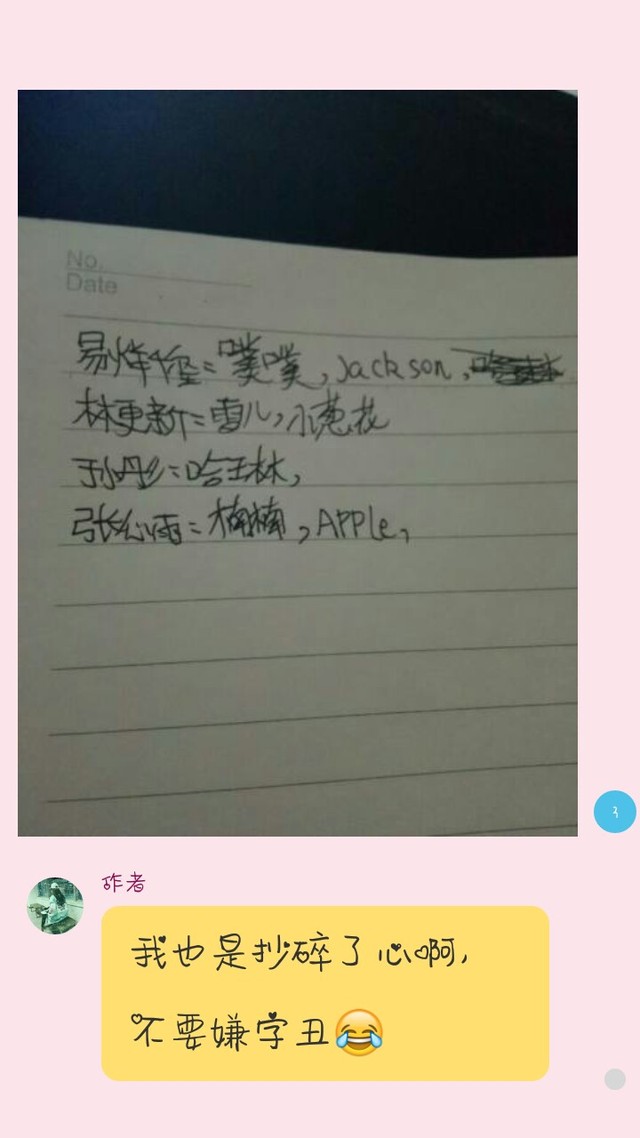 No.
Date
易烊千玺=噗噗,Jackson,
林更新=雪儿,小葱花
=哈王林,
张心雨=楠楠,APPle,
3
作者
我也是抄碎了心啊,
不要嫌字丑😂